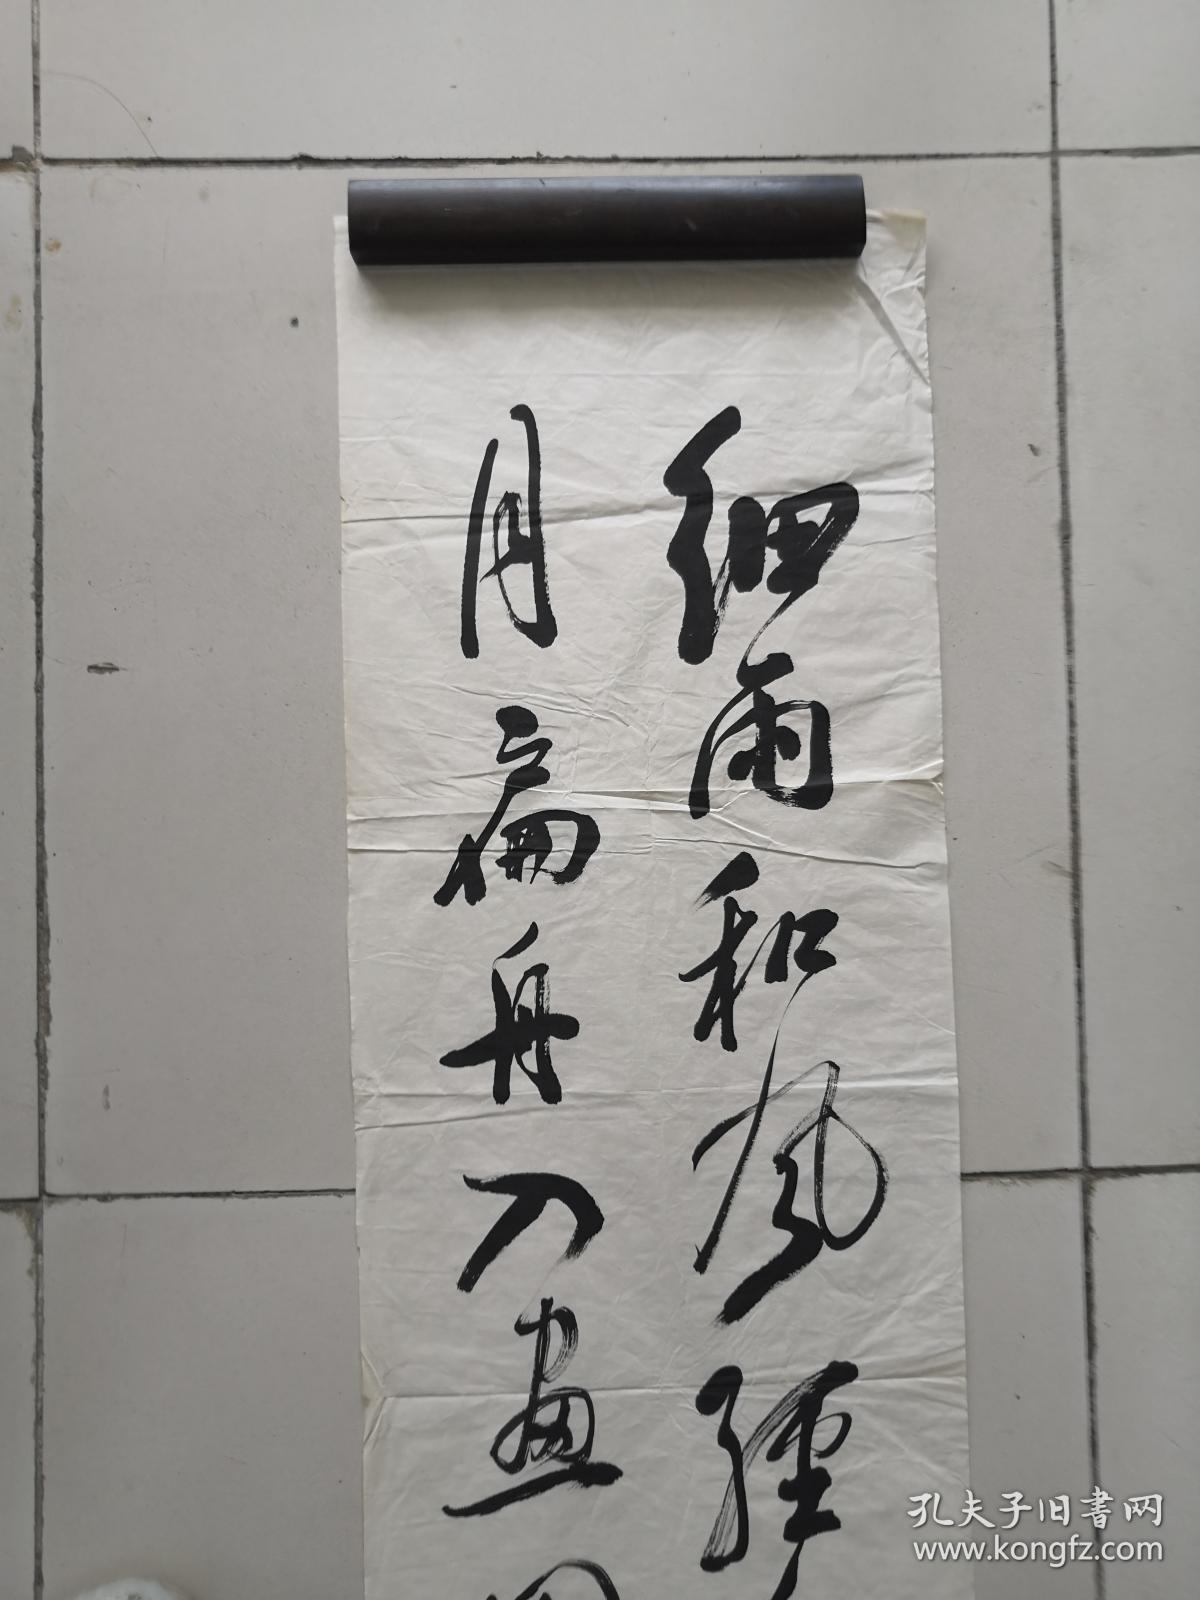 细雨和风
月扁舟入画
孔夫子旧書网
www.kongfz.com